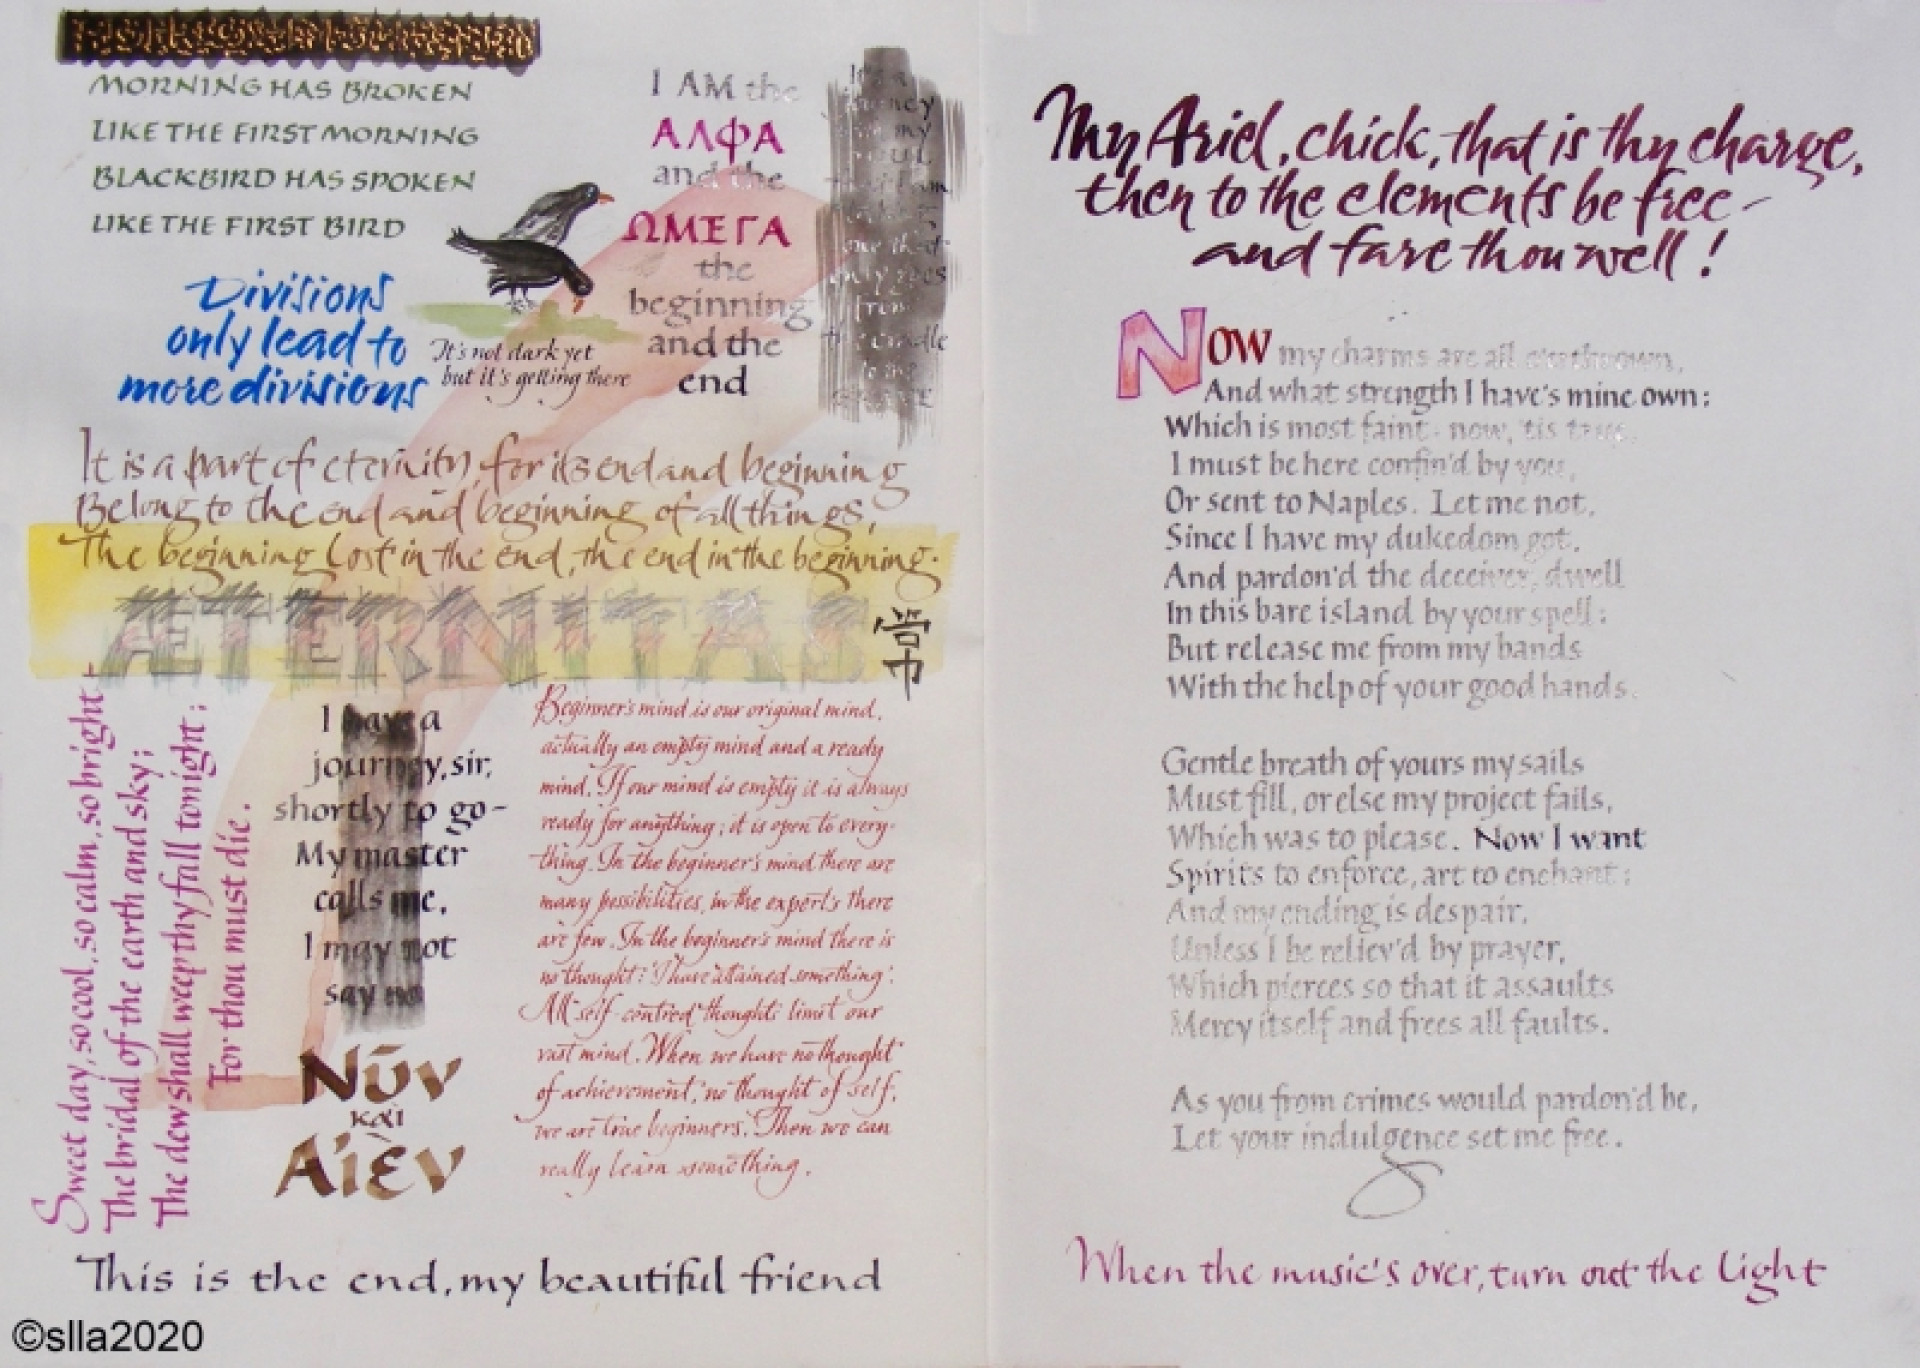 MORNING HAS BROKEN
LIKE THE FIRST MORNING
BLACKBIRD HAS SPOKEN
LIKE THE FIRST BIRD
Divisions
only lead to
more divisions
It's not dark yet
but it's getting there
I AM the
ΑΛΦΑ
and the
ΩΜΕΓΑ
the
beginning
and the
end
It's a
my
one that
only goes
from
the cradle
to the
GRAVE
It is a part of eternity, for its end and beginning
Belong to the end and beginning of all things,
The beginning lost in the end, the end in the beginning.
ÆTERNITAS
常
Sweet day, so cool, so calm, so bright -
The bridal of the earth and sky;
The dew shall weep thy fall tonight;
For thou must die.
I have a
journey, sir,
shortly to go -
My master
calls me,
I may not
say no
Νῦν
καὶ
Αἰὲν
Beginner's mind is our original mind,
actually an empty mind and a ready
mind. If our mind is empty it is always
ready for anything; it is open to every-
thing. In the beginner's mind there are
many possibilities, in the expert's there
are few. In the beginner's mind there is
no thought: 'I have attained something'.
All self-centred thoughts limit our
vast mind. When we have no thought
of achievement, no thought of self,
we are true beginners. Then we can
really learn something.
This is the end, my beautiful friend
My Ariel, chick, that is thy charge,
then to the elements be free -
and fare thou well!
NOW my charms are all o'erthrown,
And what strength I have's mine own:
Which is most faint - now, 'tis true,
I must be here confin'd by you,
Or sent to Naples. Let me not,
Since I have my dukedom got,
And pardon'd the deceiver, dwell
In this bare island by your spell:
But release me from my bands
With the help of your good hands.
Gentle breath of yours my sails
Must fill, or else my project fails,
Which was to please. Now I want
Spirits to enforce, art to enchant:
And my ending is despair,
Unless I be reliev'd by prayer,
Which pierces so that it assaults
Mercy itself and frees all faults.
As you from crimes would pardon'd be,
Let your indulgence set me free.
When the music's over, turn out the light
©slla2020